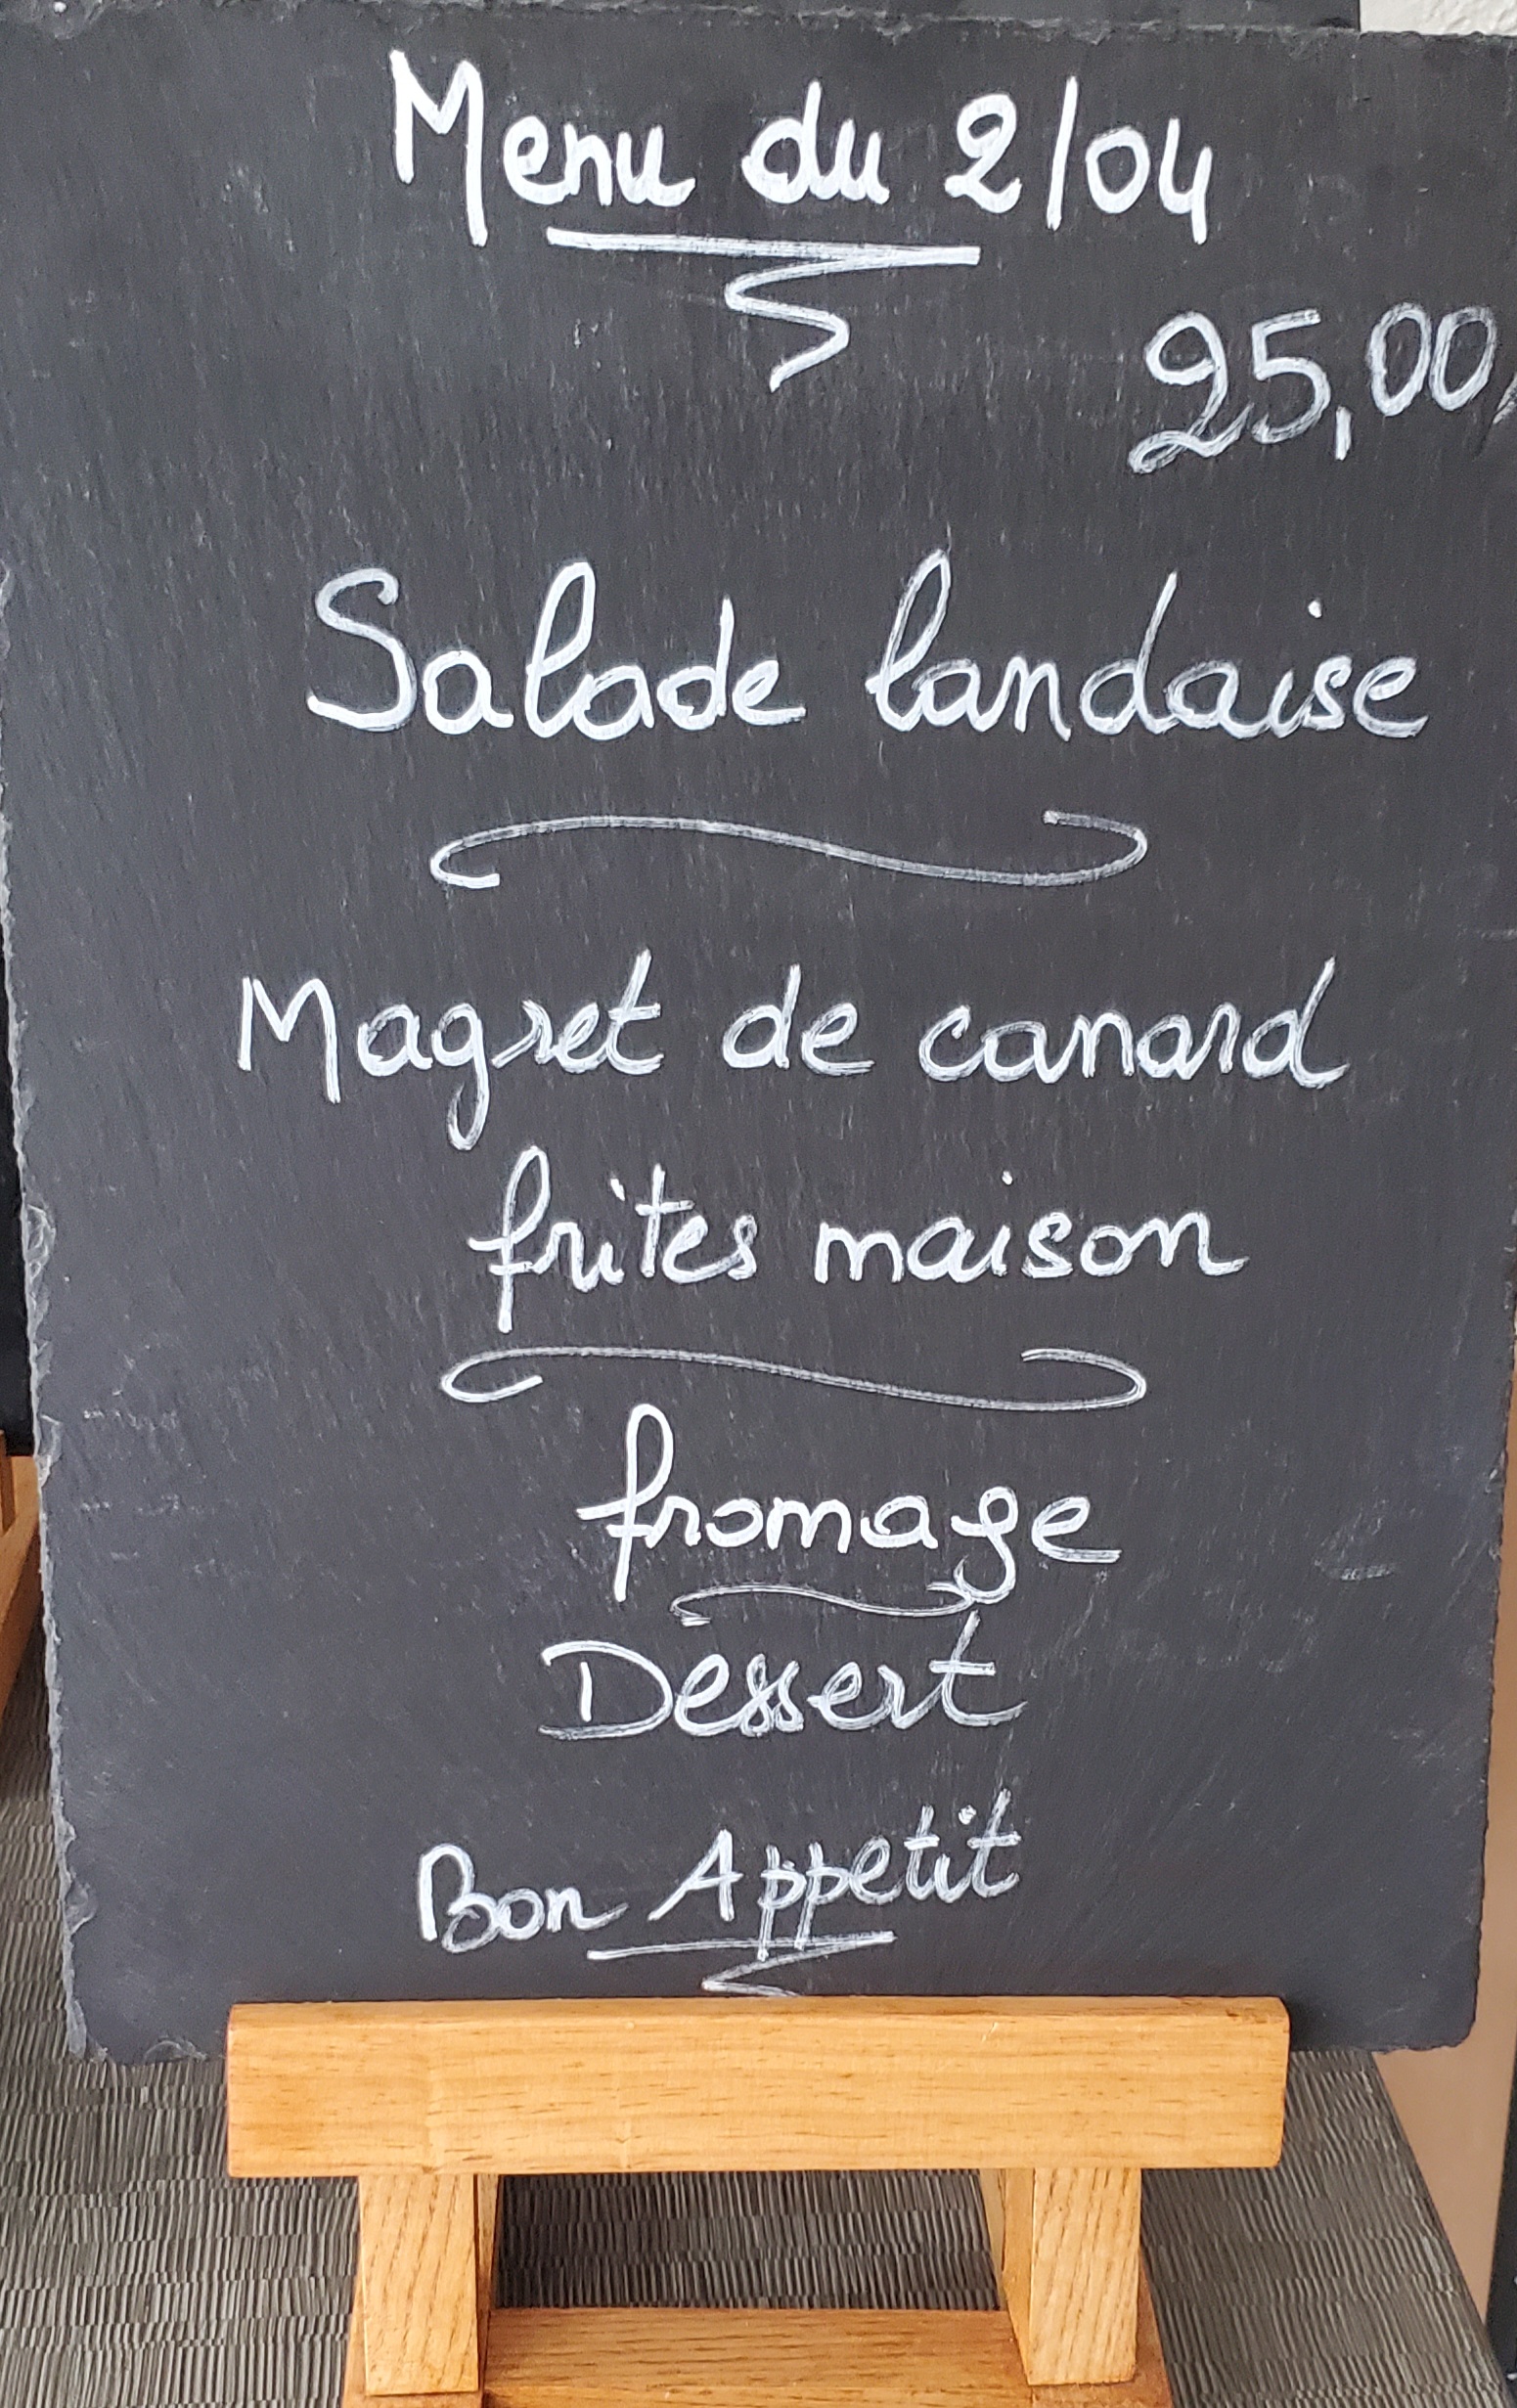 Menu du 2/04
25,00
Salade landaise
Magret de canard
frites maison
fromage
Dessert
Bon Appetit